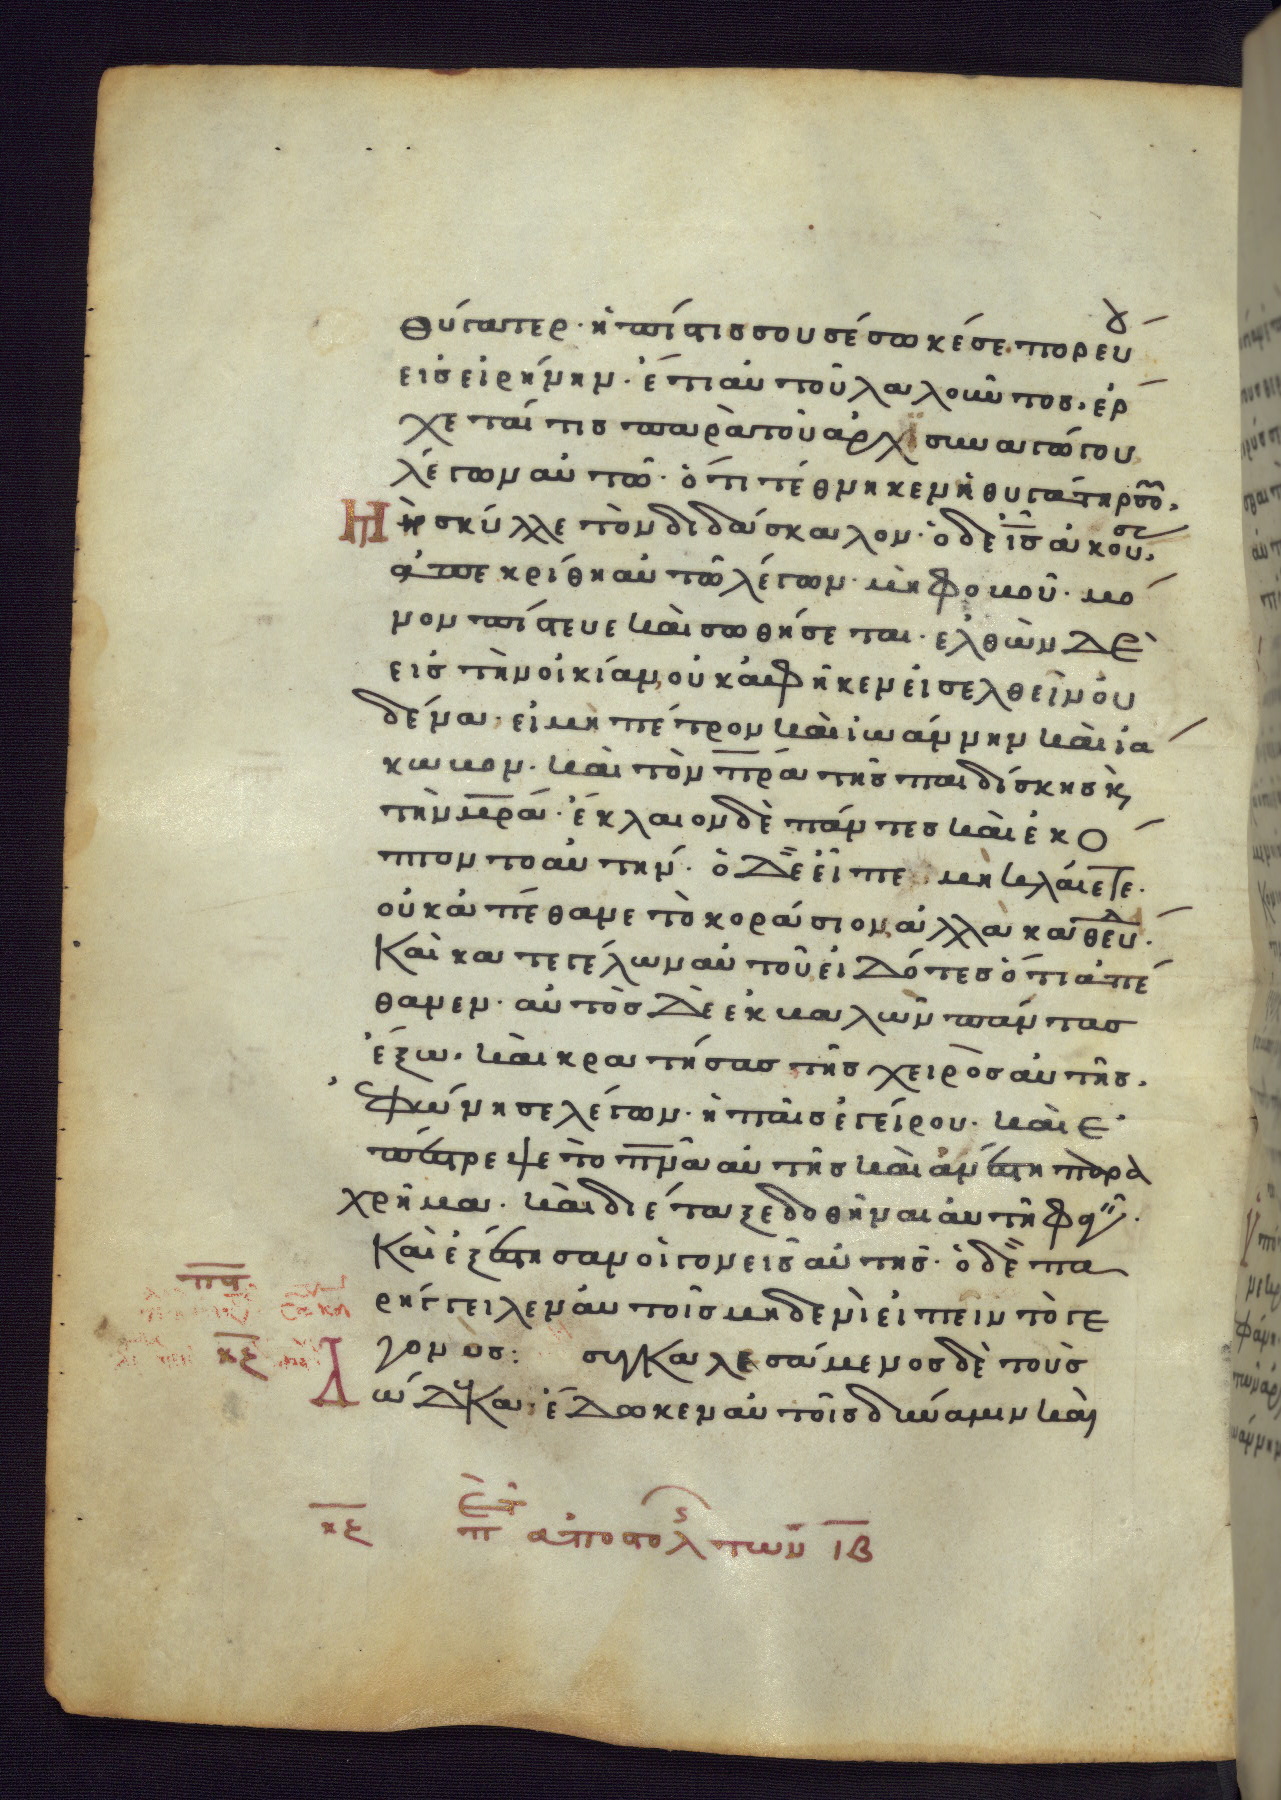 θύγατερ· ἡ πίστις σου σέσωκέ σε· πορεύου
εἰς εἰρήνην· ἔτι αὐτοῦ λαλοῦντος, ἔρ
χεταί τις παρὰ τοῦ ἀρχϊσυναγώγου
λέγων αὐτῶ· ὅτι τέθνηκεν ἡ θυγάτηρ σου,
μὴ σκύλλε τὸν διδάσκαλον· ὁ δὲ ις ἀκούσας,
ἀπεκρίθη αὐτῶ λέγων· μὴ φοβοῦ· μό
νον πίστευε καὶ σωθήσεται· ἐλθὼν δὲ
εἰς τὴν οἰκίαν, οὐκ ἀφῆκεν εἰσελθεῖν οὐ
δένα· εἰ μὴ πέτρον καὶ ἰωάννην καὶ ἰά
κωβον· καὶ τὸν πρα τῆς παιδίσκης κ̀
τὴν μρα· ἔκλαιον δὲ πάντες καὶ ἐκό
πτοντο αὐτήν· ὁ δὲ εἶπε μὴ κλαίετε·
οὐκ ἀπέθανε τὸ κοράσιον, ἀλλὰ καθεύδει·
Καὶ κατεγέλων αὐτοῦ εἰδότες ὅτι ἀπέ
θανεν· αὐτὸς δὲ ἐκβαλὼν πάντας
ἔξω· καὶ κρατήσας τῆς χειρὸς αὐτῆς,
ἐφώνησε λέγων· ἡ παῖς ἐγείρου· καὶ ἐ
πέστρεψε τὸ πνα αὐτῆς καὶ ἀνέστη παρα
χρῆμα· καὶ διέταξε δοθῆναι αὐτῆ φαγεῖν·
Καὶ ἐξέστησαν οἱ γονεῖς αὐτῆς· ὁ δὲ πα
ρήγγειλεν αὐτοῖς μηδενὶ εἰπεῖν τὸ γε
γονός: συγκαλεσάμενος δὲ τοὺς
δώδεκα· ἔδωκεν αὐτοῖς δύναμιν καὶ
κξ
κξ ἀποστολ τῶν ιβ